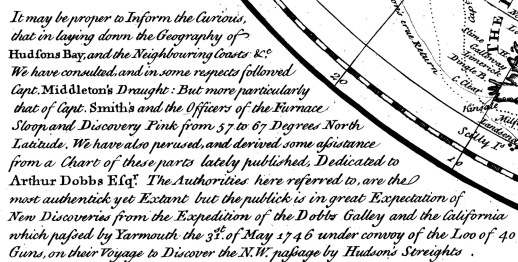 It may be proper to Inform the Curious,
that in laying down the Geography of
Hudsons Bay, and the Neighbouring Coasts &c
We have consulted, and in some respects followed
Capt. Middleton's Draught: But more particularly
that of Capt. Smith's and the Officers of the Furnace
Sloop and Discovery Pink from 57 to 67 Degrees North
Latitude. We have also perused, and derived some aſsistance
from a Chart of these parts lately published, Dedicated to
Arthur Dobbs Eſqr. The Authorities here referred to, are the
most authentick yet Extant but the publick is in great Expectation of
New Discoveries from the Expedition of the Dobbs Galley and the California
which paſsed by Yarmouth the 31st. of May 1746 under convoy of the Loo of 40
Guns, on their Voyage to Discover the N.W. paſsage by Hudson's Streights .
one Return
20
Galloway
Limerick
Dingle B.
C. Clear
Kinsale
Scilly Is